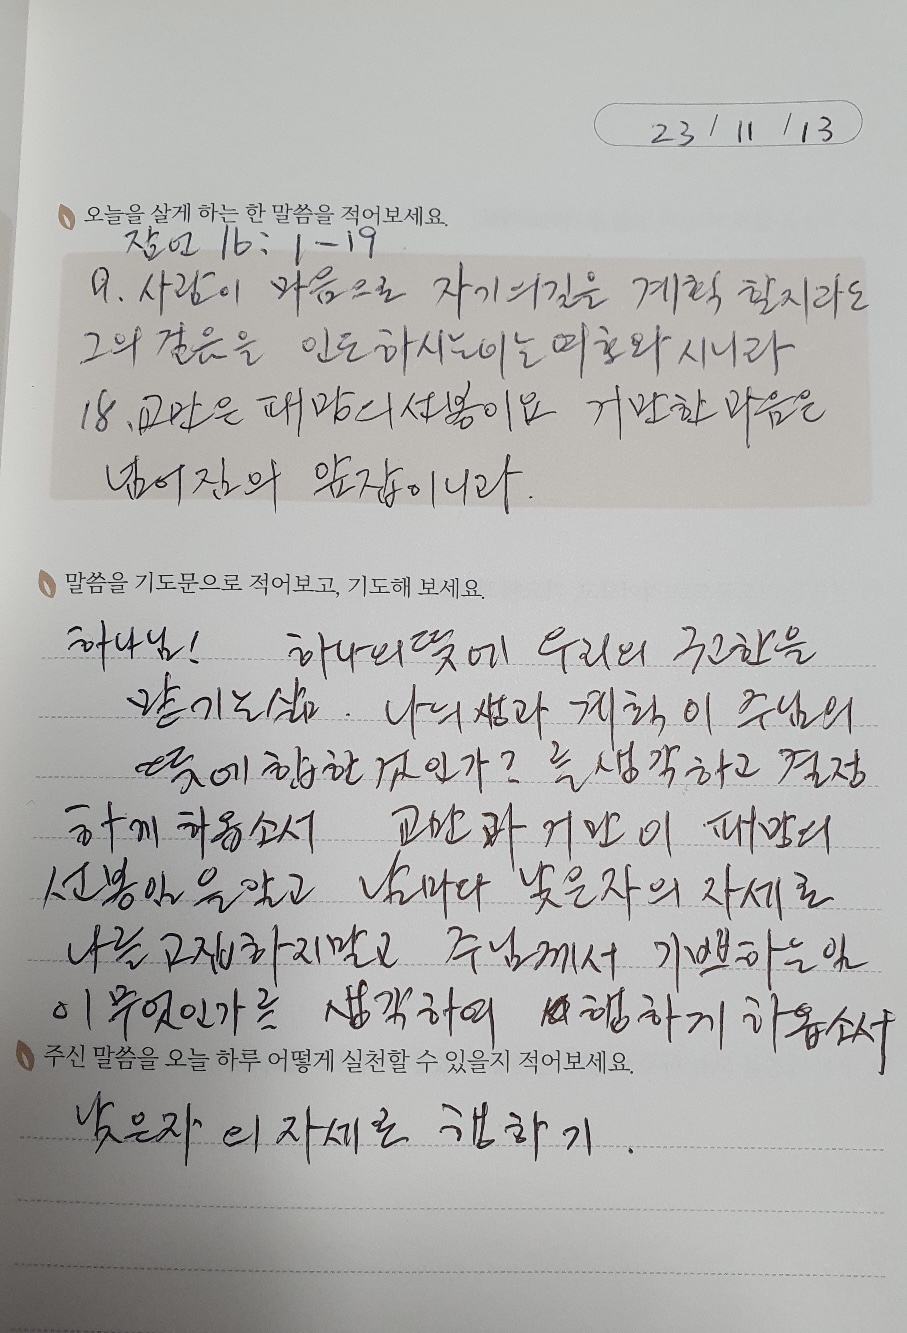 23 / 11 / 13
오늘을 살게 하는 한 말씀을 적어보세요.
잠언 16: 1-19
9. 사람이 마음으로 자기의길을 계획 할지라도
그의 걸음을 인도하시는이는여호와시니라
18. 교만은 패망의선봉이요 거만한 마음은
넘어짐의 앞잡이니라.
말씀을 기도문으로 적어보고, 기도해 보세요.
하나님! 하나의뜻에 우리의
맏기는삶. 나의생과 계획이 주님의
뜻에합한것인가? 를생각하고 결정
하게 하옵소서 교만과 거만이 패망의
선봉임을알고 날마다 낮은자의 자세로
나를고집하지말고 주님께서 기쁘하는일
이무엇인가를 생각하며 행하게하옵소서
주신 말씀을 오늘 하루 어떻게 실천할 수 있을지 적어보세요.
낮은자의자세로 행하기.